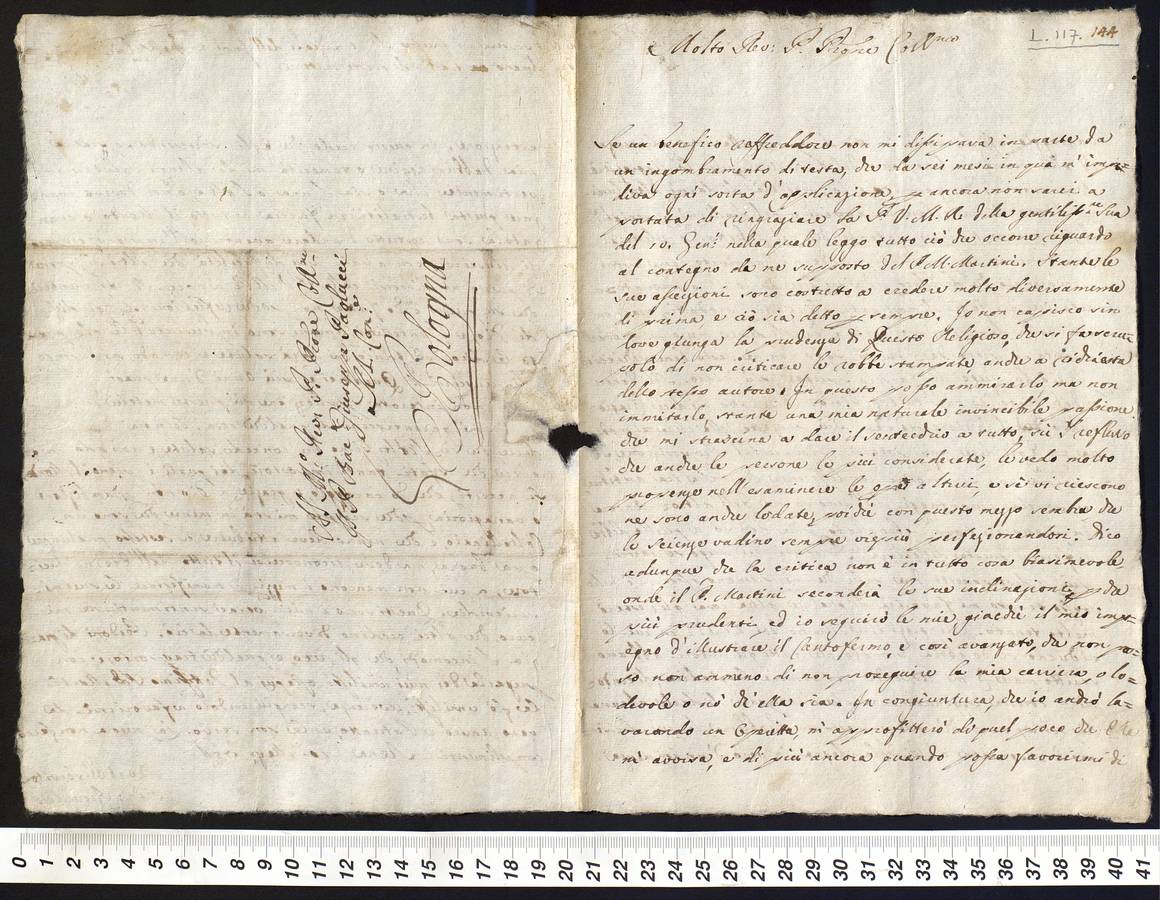 All M.to Revdo P. Pñe Coll.mo
Il P. Bac.re Giuseppe Paolucci
M.C. Con:
Bologna
L. 117. 144
Molto Rev: P. Prone Coll.mo
Se un benefico raffreddore non mi dissipava in parte da
un ingombramento di testa, che da sei mesi in quà m'impe=
diva ogni sorta d'applicazione, p ancora non sarei a
portata di ringraziare la P. V. M. R. della gentiliss.ma Sua
del 10. Gen: nella quale leggo tutto ciò che occorre riguardo
al contegno da me supposto del P. M. Martini. Stante le
sue asserzioni sono costretto a credere molto diversamente
di prima e ciò sia detto p sempre. Io non capisco sin
dove giunga la prudenza di Questo Religioso, che si fa scru
polo di non criticare le robbe stampate anche a richiesta
dello stesso autore. In questo posso ammirarlo ma non
immitarlo, stante una mia naturale invincibile passione,
che mi strascina a dare il sentecchio a tutto, sul riflesso
che anche le persone le più considerate, le vedo molto
propense nell'esaminare le altrui, e se vi riescono
ne sono anche lodate, poichè con questo mezzo sembra che
le scienze vadino sempre vieppiù perfezionandosi. Dico
adunque che la critica non è in tutto cosa biasimevole
onde il P. Martini seconderà le sue inclinazioni, p che
più prudenti, ed io seguirò le mie giacchè il mio imp=
egno d'illustrare il Cantofermo, e così avanzato, che non po=
so non ammeno di non proseguire la mia carriera, o lo=
devole o nò ch'ella sia. In congiuntura, che io andrò la=
vorando un Operetta, m'approfitterò di quel poco che Ella
m'avvisa, e di più ancora quando possa favorirmi di